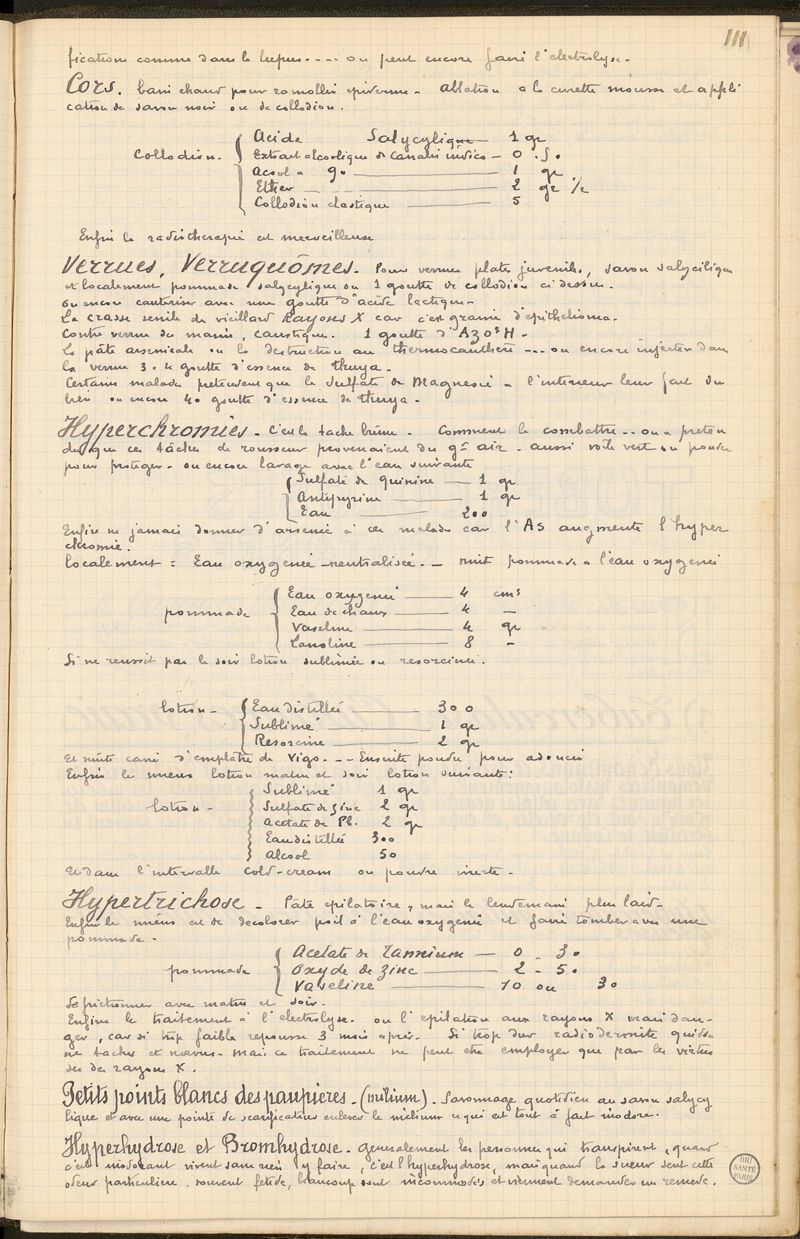 111
fications comme dans le lupus .... on peut encore faire l'electrolyse.
Cors. bain chaud pour ramollir epiderme - ablation a la curette mousse et appli
cation de savon noir ou de collodion.
Collodion. Acide Salycylique 1 gr
Extrait alcoolique de Canabis indica — 0.50
Acool a 90 — 1 gr
Ether — 2 gr 1/2
Collodion elastique — 5
Enfin la radiotherapie est merveilleuse
Verrues, Verruquômes. Pour verrues plates juveniles, savon salycilique
et localement pommade salycylique ou 1 goutte de collodion ci dessus.
ou mieux cauteriser avec une goutte d'acide lactique.
La crasse senile du vieillard Rayons X car c'est graine d'epithelioma.
Contre verrue des mains, caustique. 1 goutte d'AzO3H.
La pâte arsenicale ou la destruction au thermocauthère --- ou encore injecter dans
la verrue 3 a 4 gouttes d'essence de thuya.
Certains malades pretendent que le Sulfate de Magnesie a l'interieur leur fait du
bien ou encore 40 gouttes d'essence de thuya.
Hyperchromies. C'est la tache brune. Comment la combattre... on a preten
du que ces tâches de rousseur provenaient du gd air. aussi voile vert ou poudre
pour proteger. ou encore lavage avec l'eau suivante
Sulfate de quinine — 1 gr
Antipyrine — 1 gr
Eau — 200
Enfin ne jamais donner d'arsenic à ces malades car l'As augmente l'hyper
chromie.
Localement = Eau oxygenée neutralisée. — nuit pommade a l'eau oxygenée
pommade Eau oxygenée — 4 cm3
Eau de chaux — 4 —
Vaseline — 4 gr
Lanoline — 8 -
Si ne reussit pas le soir lotion sublimée ou resorcinée.
lotion - Eau distillée 300
Sublimé — 1 gr
Resorcine — 2 gr
Et nuits carré d'emplâtre de Vigo. - - Ensuite poudre pour adoucir
Enfin le mieux lotion matin et soir lotion suivante:
lotion - Sublimé 1 gr
Sulfate de zinc 2 gr
Acetate de Pb. 2 gr
Eau distillée 300
Alcool 50
Et dans l'intervalle cold-cream ou poudre inerte.
Hypertrichose - Pâte epilatoire, mais le lendemain plus laid.
Enfin le mieux est de decolorer poil à l'eau oxygenée et faire tomber avec une
pommade.
pommade Acetate de Tannium — 0. 30
Oxyde de Zinc — 2 - 50
Vaseline — 10 ou 30
Se frictionner avec matin et soir.
Enfin le traitement à l'electrolyse. ou l'epilation aux rayons X mais dan-
ger, car si trop faible repousse 3 mois après. Si trop dur radiodermite
ne taches et nœvus. Mais ce traitement ne peut etre employer que par les virtuo
ses des rayons X.
Petits points blancs des paupieres. (milium). Savonnage quotidien au savon salycy
lique et avec une pointe de scarificateur enlever le milium ce qui est tout à fait indolore.
Hyperhydrose et Bromhydrose. Generalement les personnes qui transpirent, quand
c'est inodorant vivent sans rien y faire, c'est l'hyperhydrose, mais quand la sueur sent cette
odeur particuliere, souvent fetide, beaucoup sont incommodés et viennent demander un remede.
BIU
SANTÉ
PARIS